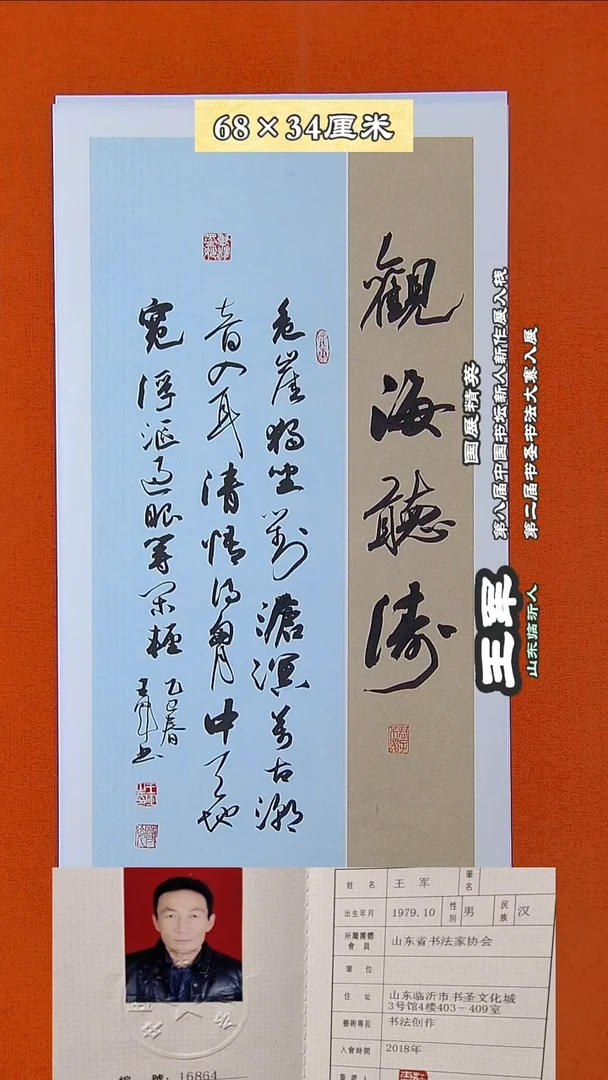 68×34厘米
觀海聽濤
危崖獨坐對滄溟萬古潮
音入耳清悟得胸中天地
寬浮漚過眼等閑輕
乙巳春
王軍书
国展精英
第八届中国书坛新人新作展入展
第二届书圣书法大赛入展
王军
山东临沂人
姓 名 王 军 筆名
出生年月 1979.10 性別 男 民族 汉
所屬團體會員 山东省书法家协会
單 位
住 址 山东临沂市书圣文化城
3号馆4楼403－409室
藝術專長 书法创作
入會時間 2018年
編 號：16864